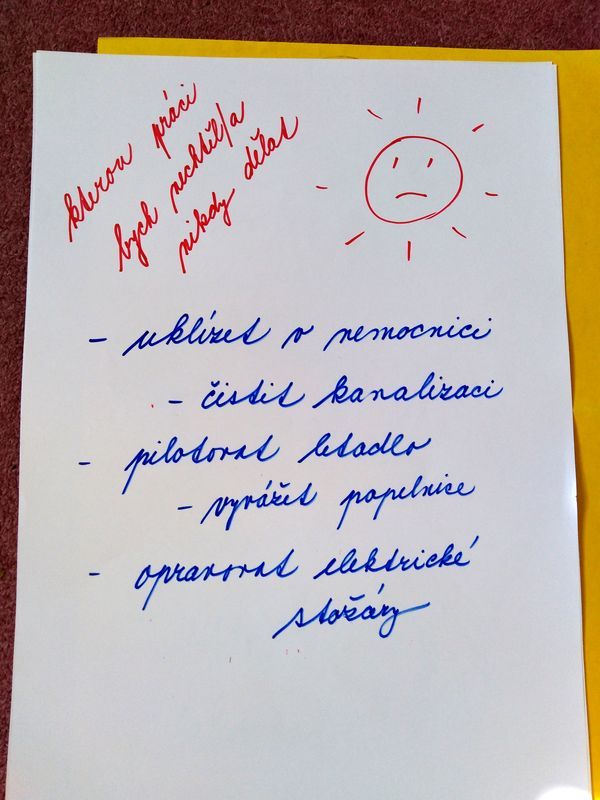 kterou práci
bych nechtěl/a
nikdy dělat
- uklízet v nemocnici
- čistit kanalizaci
- pilotovat letadlo
- vyvážet popelnice
- opravovat elektrické
stožáry